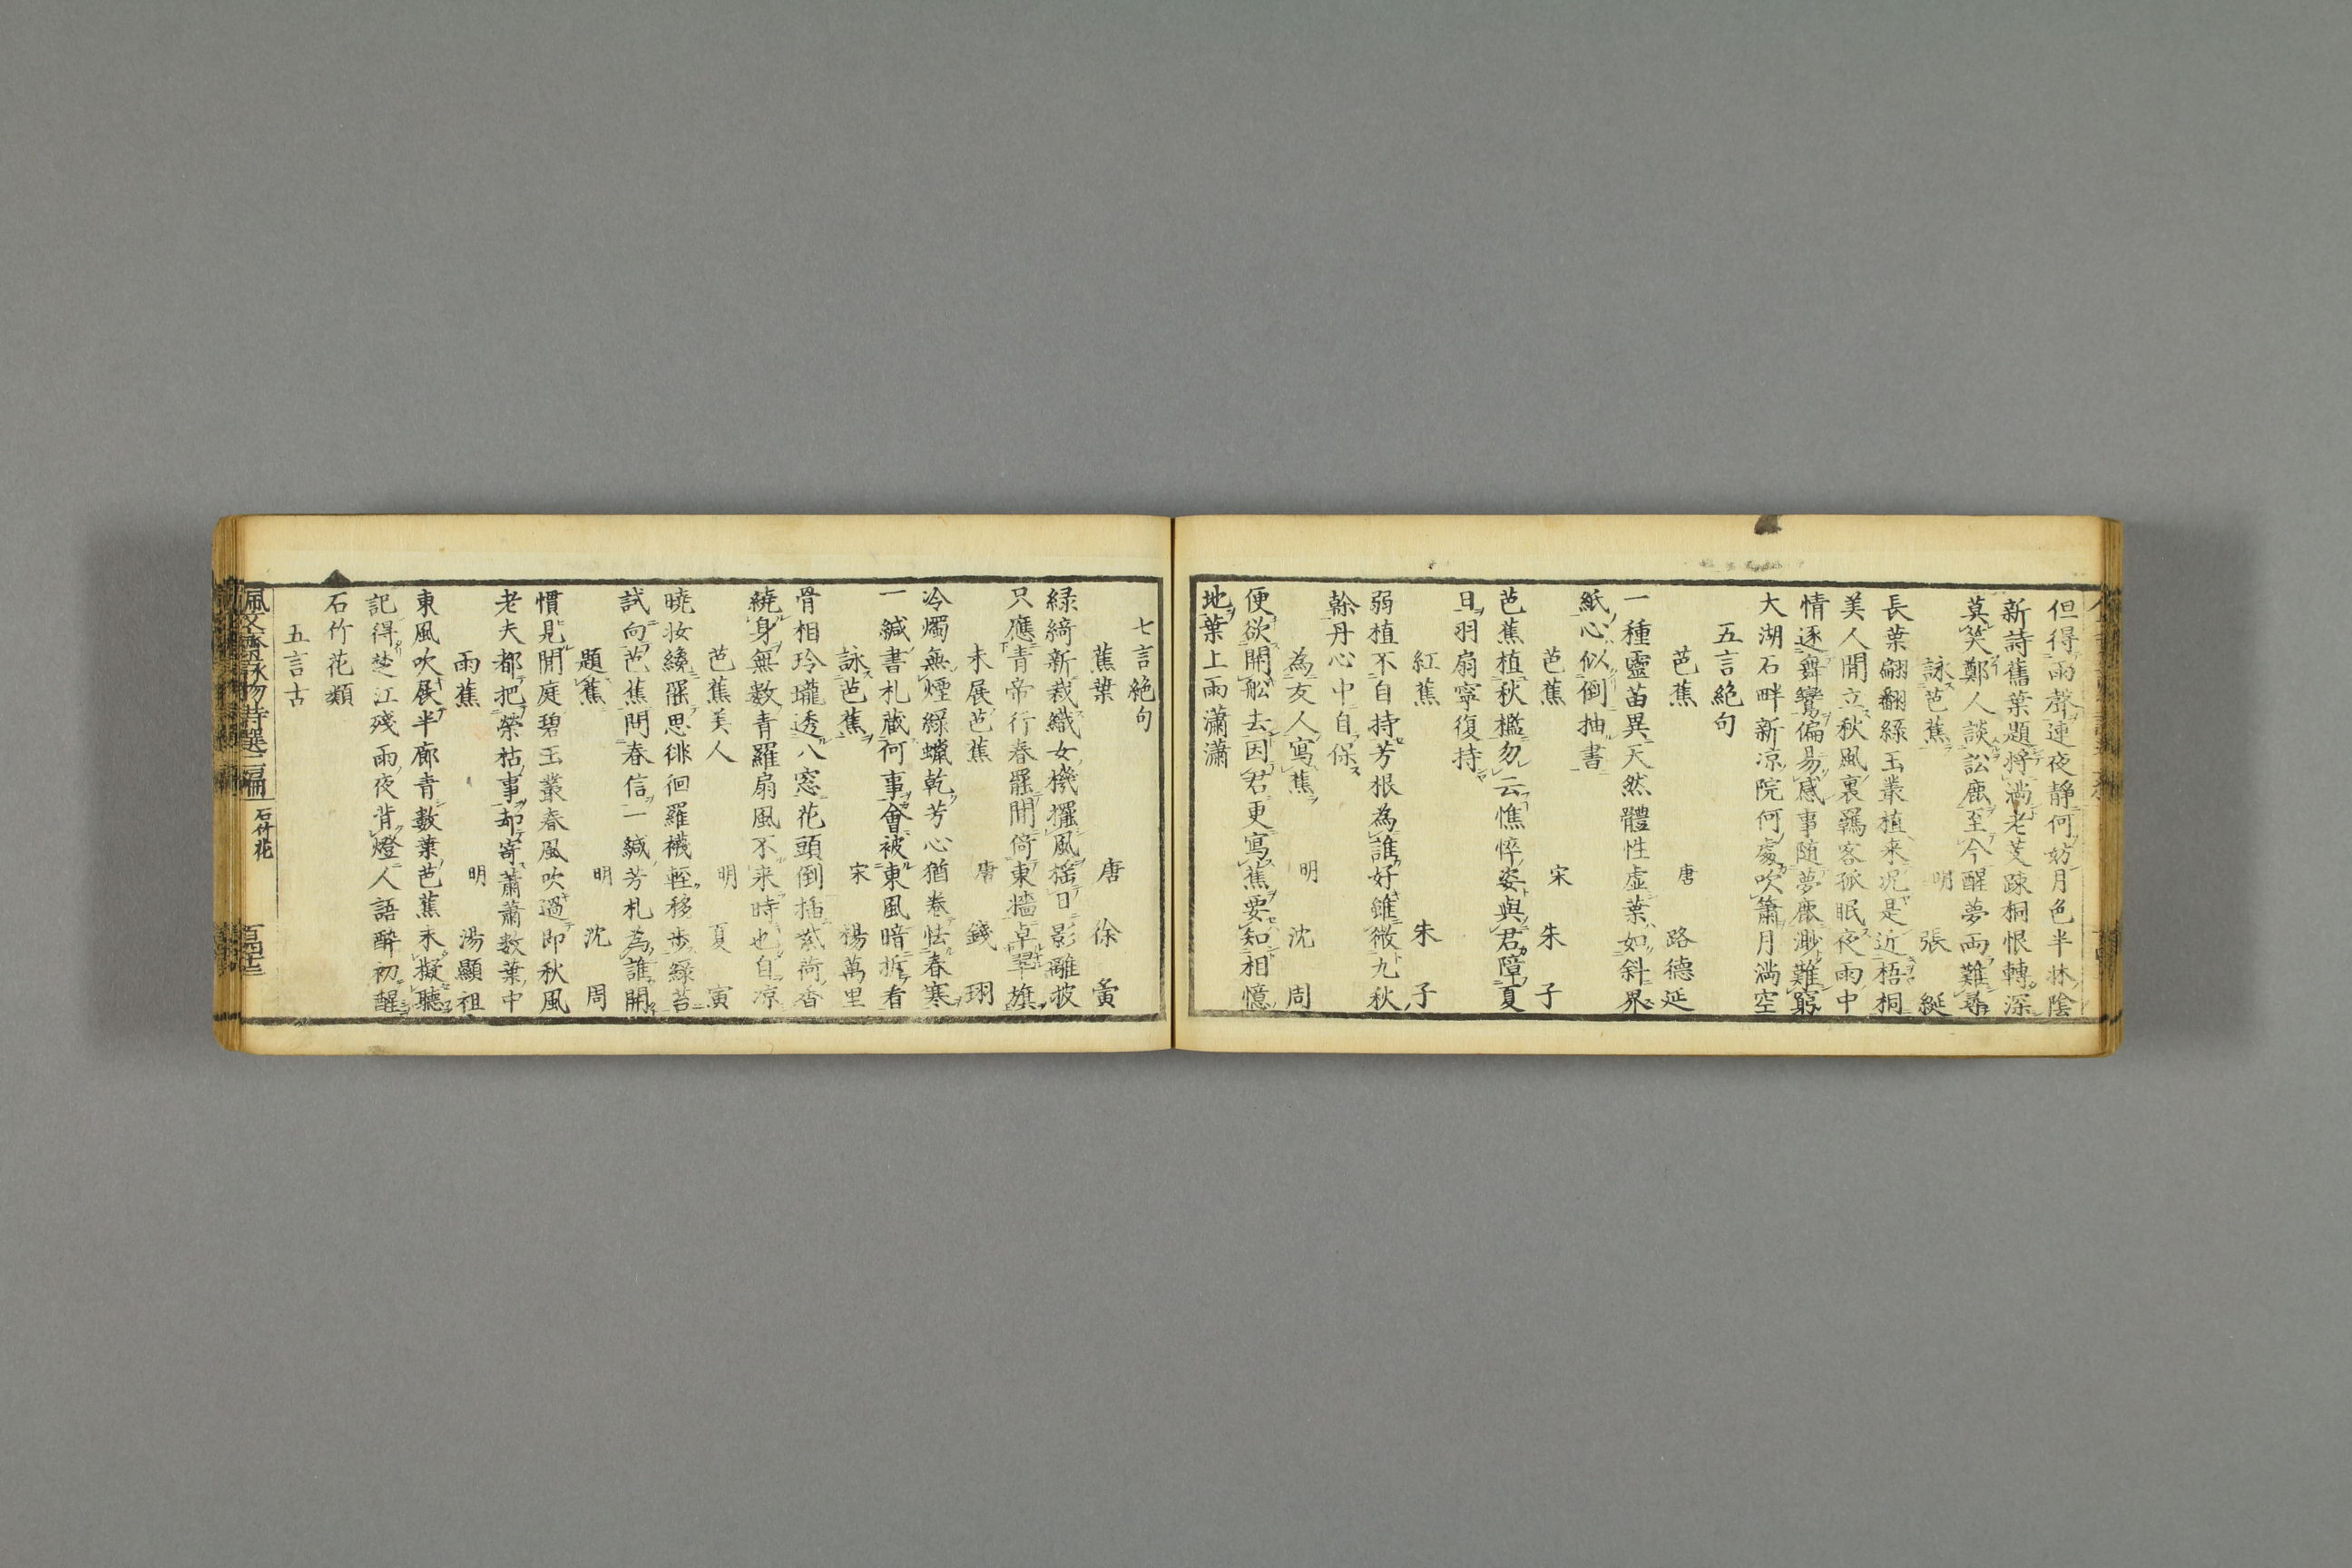 但得雨聲連夜靜何妨月色半牀陰
新詩舊葉題將滿老芰踈桐恨轉深
莫笑鄭人談訟鹿至今醒夢兩難尋
詠芭蕉 明 張 綖
長葉翩翻綠玉叢植来况是近梧桐
美人閒立秋風裏羈客孤眠夜雨中
情逐舞鸞偏易感事随夢鹿渺難窮
大湖石畔新凉院何處吹簫月滿空
五言絶句
芭蕉 唐 路德延
一種靈苗異天然體性虛葉如斜界
紙心似倒抽書
芭蕉 宋 朱 子
芭蕉植秋檻勿云憔悴姿與君障夏
日羽扇寧復持
紅蕉 朱 子
弱植不自持芳根為誰好雖微九秋
幹丹心中自保
為友人寫蕉 明 沈 周
便欲開舩去因君更寫蕉要知相憶
地葉上雨瀟瀟
七言絶句
蕉葉 唐 徐 夤
緑綺新裁織女機擺風揺日影離披
只應青帝行春罷閒倚東墻卓翠旗
未展芭蕉 唐 錢 珝
冷燭無煙緑蠟乾芳心猶巻怯春寒
一緘書札藏何事會被東風暗拆看
詠芭蕉 宋 楊萬里
骨相玲瓏透八窓花頭倒插紫荷香
繞身無數青羅扇風不来時也自凉
芭蕉美人 明 夏 寅
曉妝纔罷思徘徊羅襪輕移歩緑苔
試向芭蕉問春信一緘芳札為誰開
題蕉 明 沈 周
慣見閒庭碧玉叢春風吹過即秋風
老夫都把榮枯事却寄蕭蕭數葉中
雨蕉 明 湯顯祖
東風吹展半廊青數葉芭蕉未擬聽
記得楚江殘雨夜背燈人語酔初醒
石竹花類
五言古
佩文齋詠物詩選二編 石竹花 百四十三